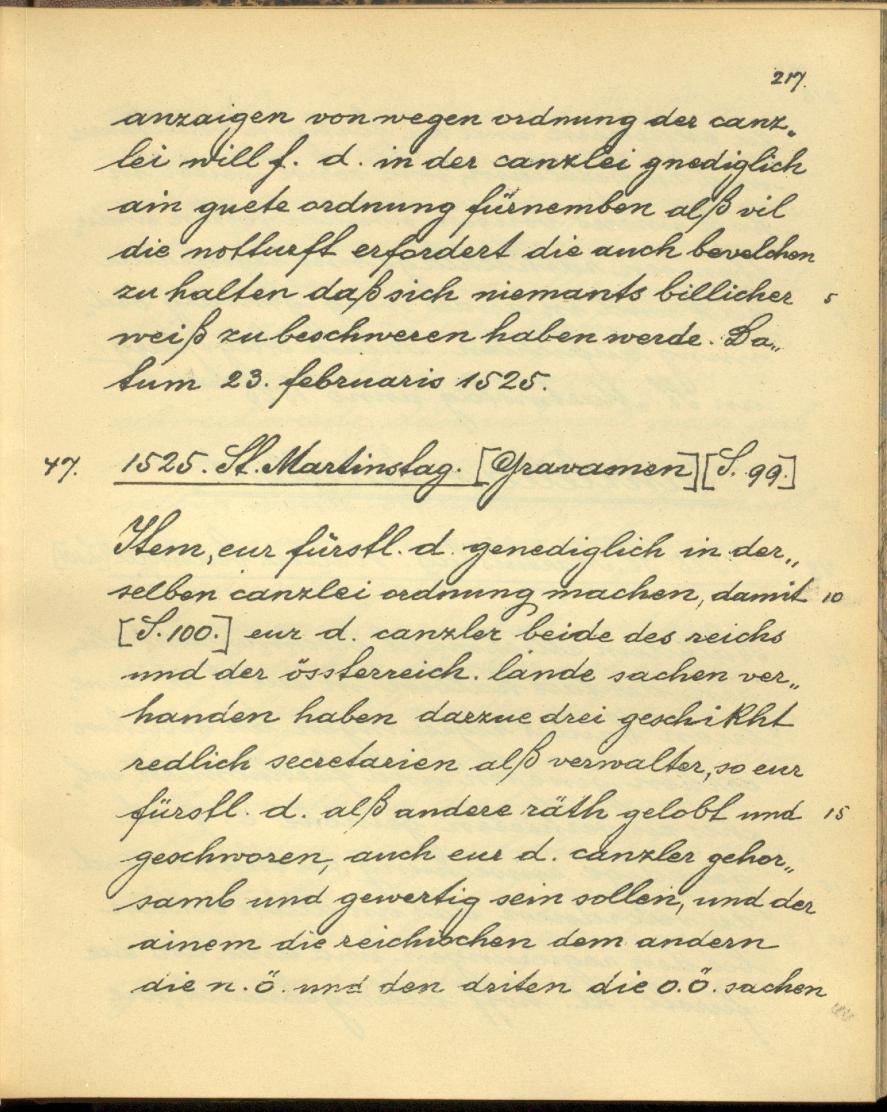 217.
anzaigen von wegen ordnung der canz„
lei will f. d. in der canzlei gnediglich
ain guete ordnung fürnemben alß vil
die notturft erfordert die auch bevelchen
zu halten daß sich niemants billicher 5
weiß zu beschweren haben werde. Da„
tum 23. februaris 1525.
47. 1525. St. Martinstag. [Gravamen] [S. 99.]
Item, eur fürstl. d. genediglich in der„
selben canzlei ordnung machen, damit 10
[S. 100.] eur d. canzler beide des reichs
und der össterreich. lande sachen ver„
handen haben darzue drei geschikht
redlich secretarien alß verwalter, so eur
fürstl. d. alß andere räth gelobt und 15
geschworen, auch eur d. canzler gehor„
samb und gewertig sein sollen, und der
ainem die reichischen dem andern
die n. ö. und den driten die o. ö. sachen